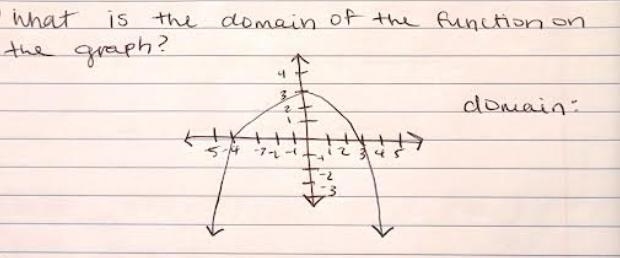 What is the domain of the function on
the graph?
domain:
4
3
2
1
-5 -4 -3 -2 -1 1 2 3 4 5
-1
-2
-3